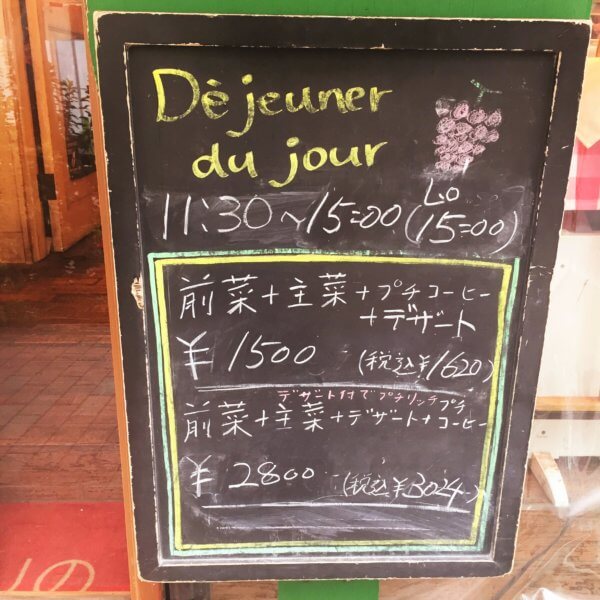 Dèjeuner
du jour
11:30～15:00(LO 15:00)
前菜+主菜+プチコーヒー
+デザート
¥1500 (税込¥1620)
デザート付でプチリッチ
前菜+主菜+デザート+プチコーヒー
¥2800 (税込¥3024)
の